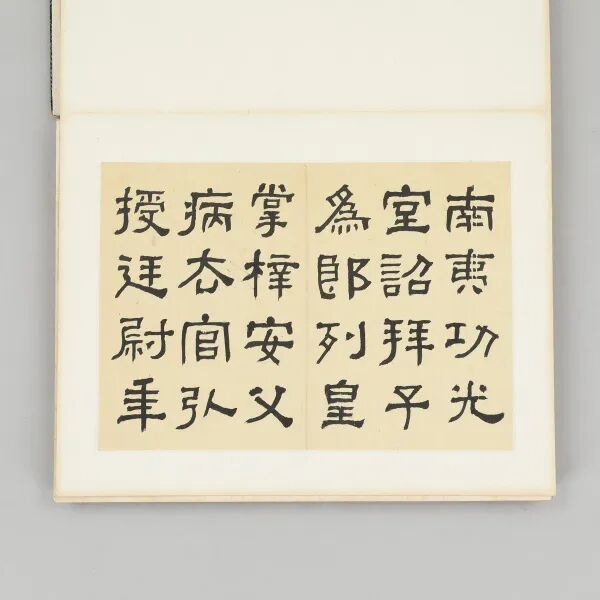 南夷功光
室詔拜子
爲郎列皇
掌梓安父
病去官弘
授廷尉年